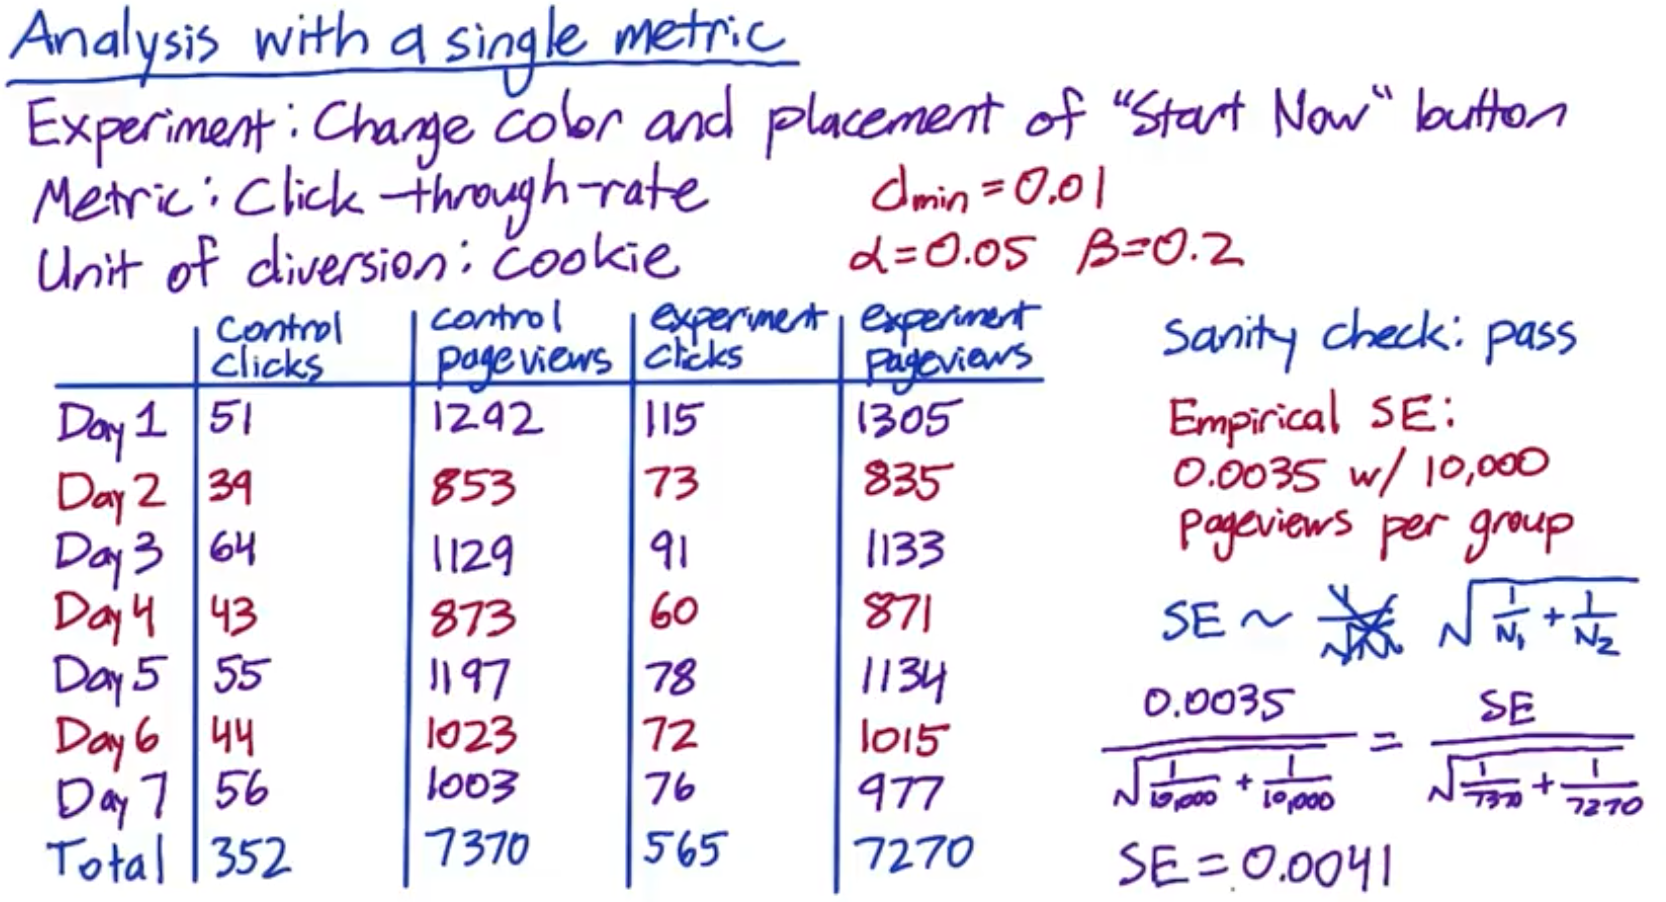 Analysis with a single metric
Experiment: Change color and placement of "Start Now" button
Metric: Click-through-rate
dmin = 0.01
Unit of diversion: cookie
α = 0.05 β = 0.2
control clicks | control pageviews | experiment clicks | experiment pageviews
Day 1 | 51 | 1292 | 115 | 1305
Day 2 | 39 | 853 | 73 | 835
Day 3 | 64 | 1129 | 91 | 1133
Day 4 | 43 | 873 | 60 | 871
Day 5 | 55 | 1197 | 78 | 1134
Day 6 | 44 | 1023 | 72 | 1015
Day 7 | 56 | 1003 | 76 | 977
Total | 352 | 7370 | 565 | 7270
Sanity check: pass
Empirical SE:
0.0035 w/ 10,000
pageviews per group
SE ~ √(1/N₁ + 1/N₂)
0.0035 / √(1/10,000 + 1/10,000) = SE / √(1/7370 + 1/7270)
SE = 0.0041